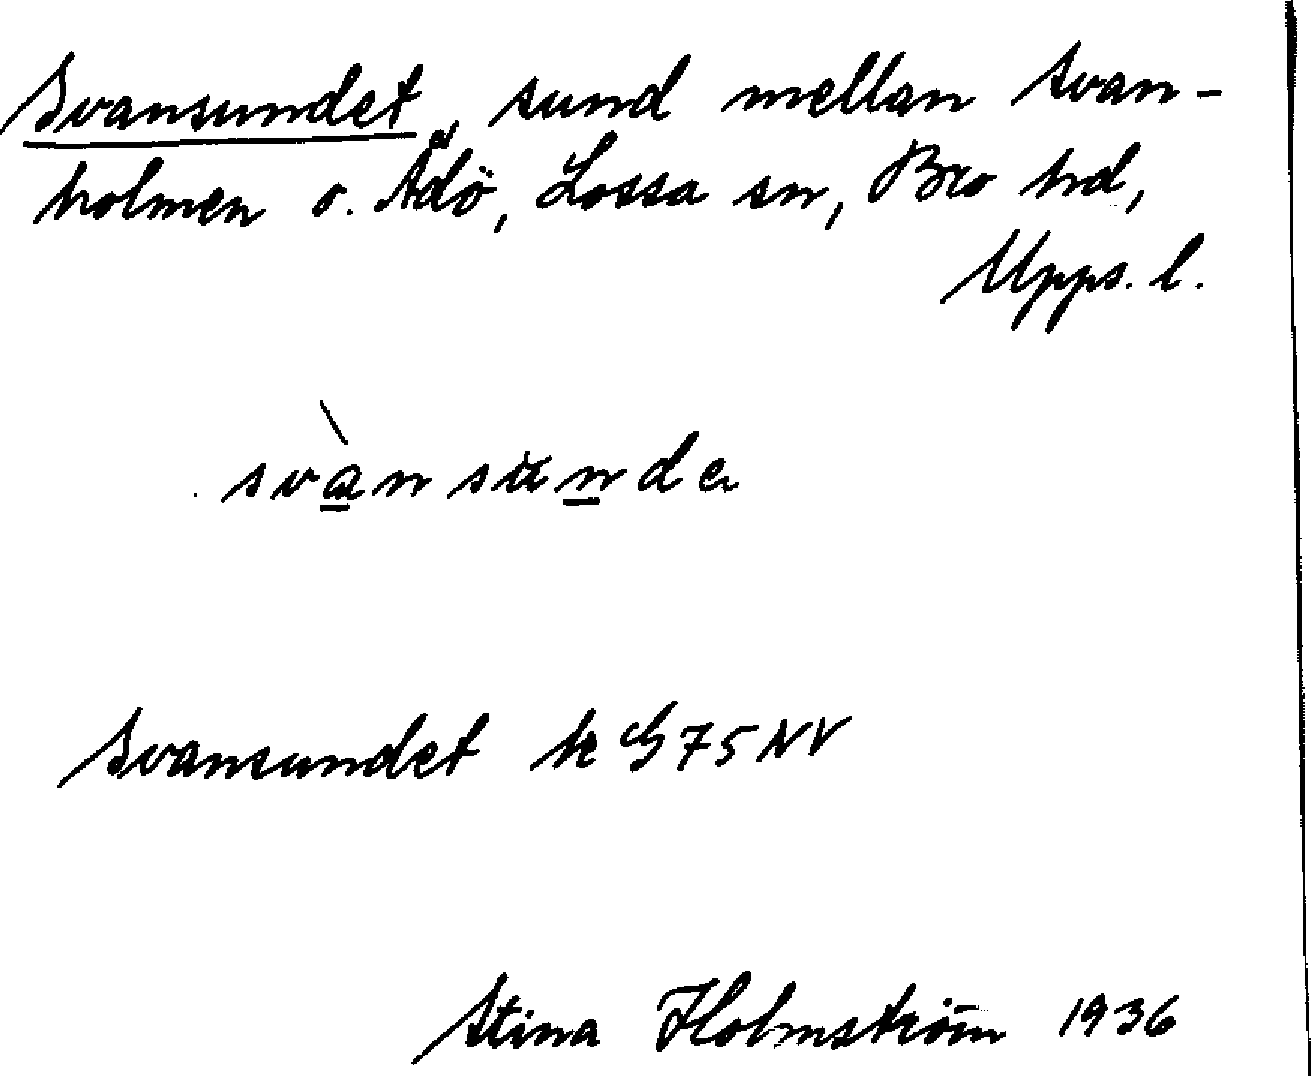 Svansundet, sund mellan Svan-
holmen o. Ådö, Lossa sn, Bro hd,
Upps. l.
svànsunde
Svansundet k G 75 NV
Stina Holmström 1936